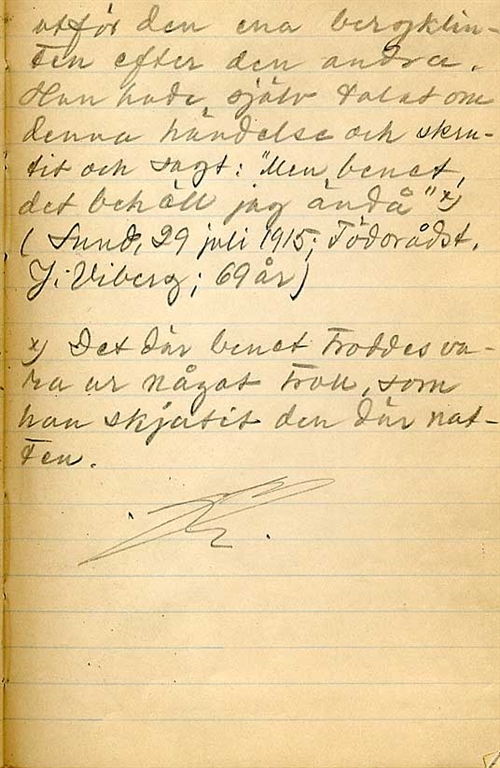 utför den ena bergklin-
ten efter den andra.
Han hade själv talat om
denna händelse och skru-
tit och sagt: "Men benet,
det behåll jag ändå" x)
(Sund, 29 juli 1915; Födorådst.
J. Viberg; 69 år)
x) Det där benet troddes va-
ra ur något troll, som
han skjutit den där nat-
ten.